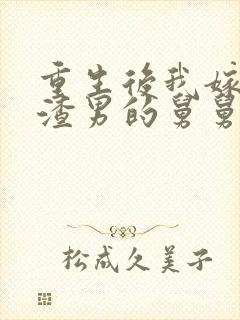 重生後我嫁
渣男的舅舅
松成久美子